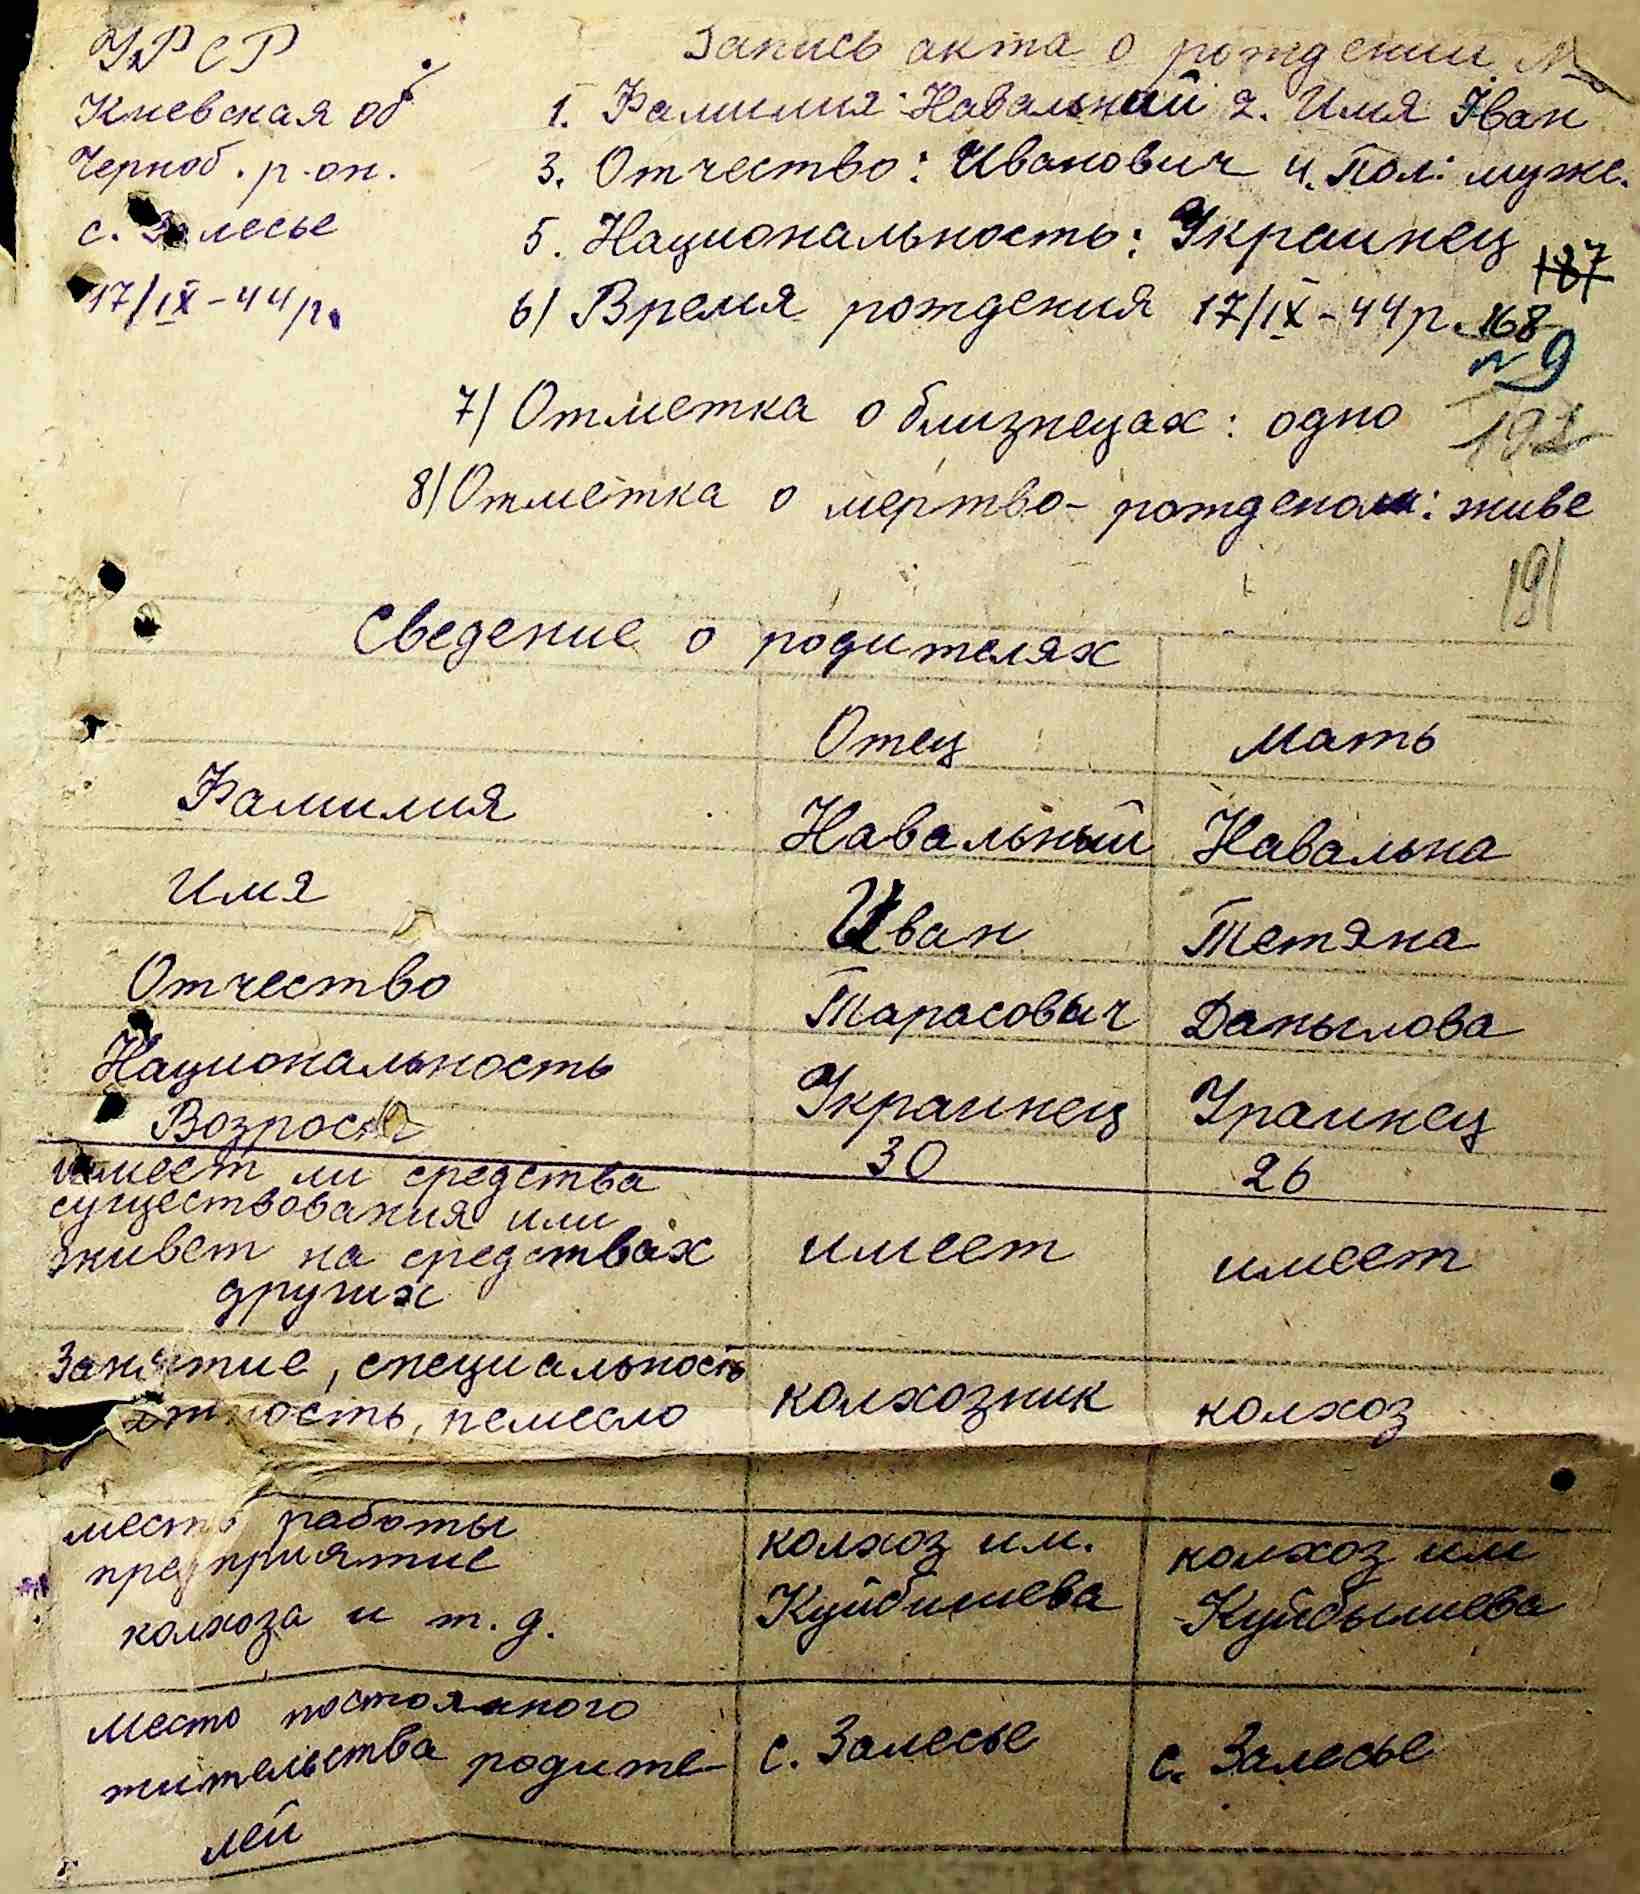 УРСР
Киевская об
Черноб. р-он.
с. Залесье
17/IX-44р.
Запись акта о рождении №
1. Фамилия: Навальний 2. Имя Іван
3. Отчество: Иванович 4. Пол: мужс.
5. Национальность: Украинец
137
6) Время рождения 17/IX-44р. 168
№9
7) Отметка о близнецах: одно
192
8) Отметка о мертво-рожденом: живе
191
Сведение о родителях
Отец Мать
Фамилия Навальный Навальна
Имя Иван Тетяна
Отчество Тарасович Данылова
Национальность УкраинецУраинец
Возрост 30 26
имеет ли средства
существования или
живет на средствах имеет имеет
других
Занятие, специальность
колхозник колхоз
место работы
предприятие колхоз им. колхоз им
колхоза и т. д. Куйбишева Куйбышева
Место постоянного
жительства родите- с. Залесье с. Залесье
лей